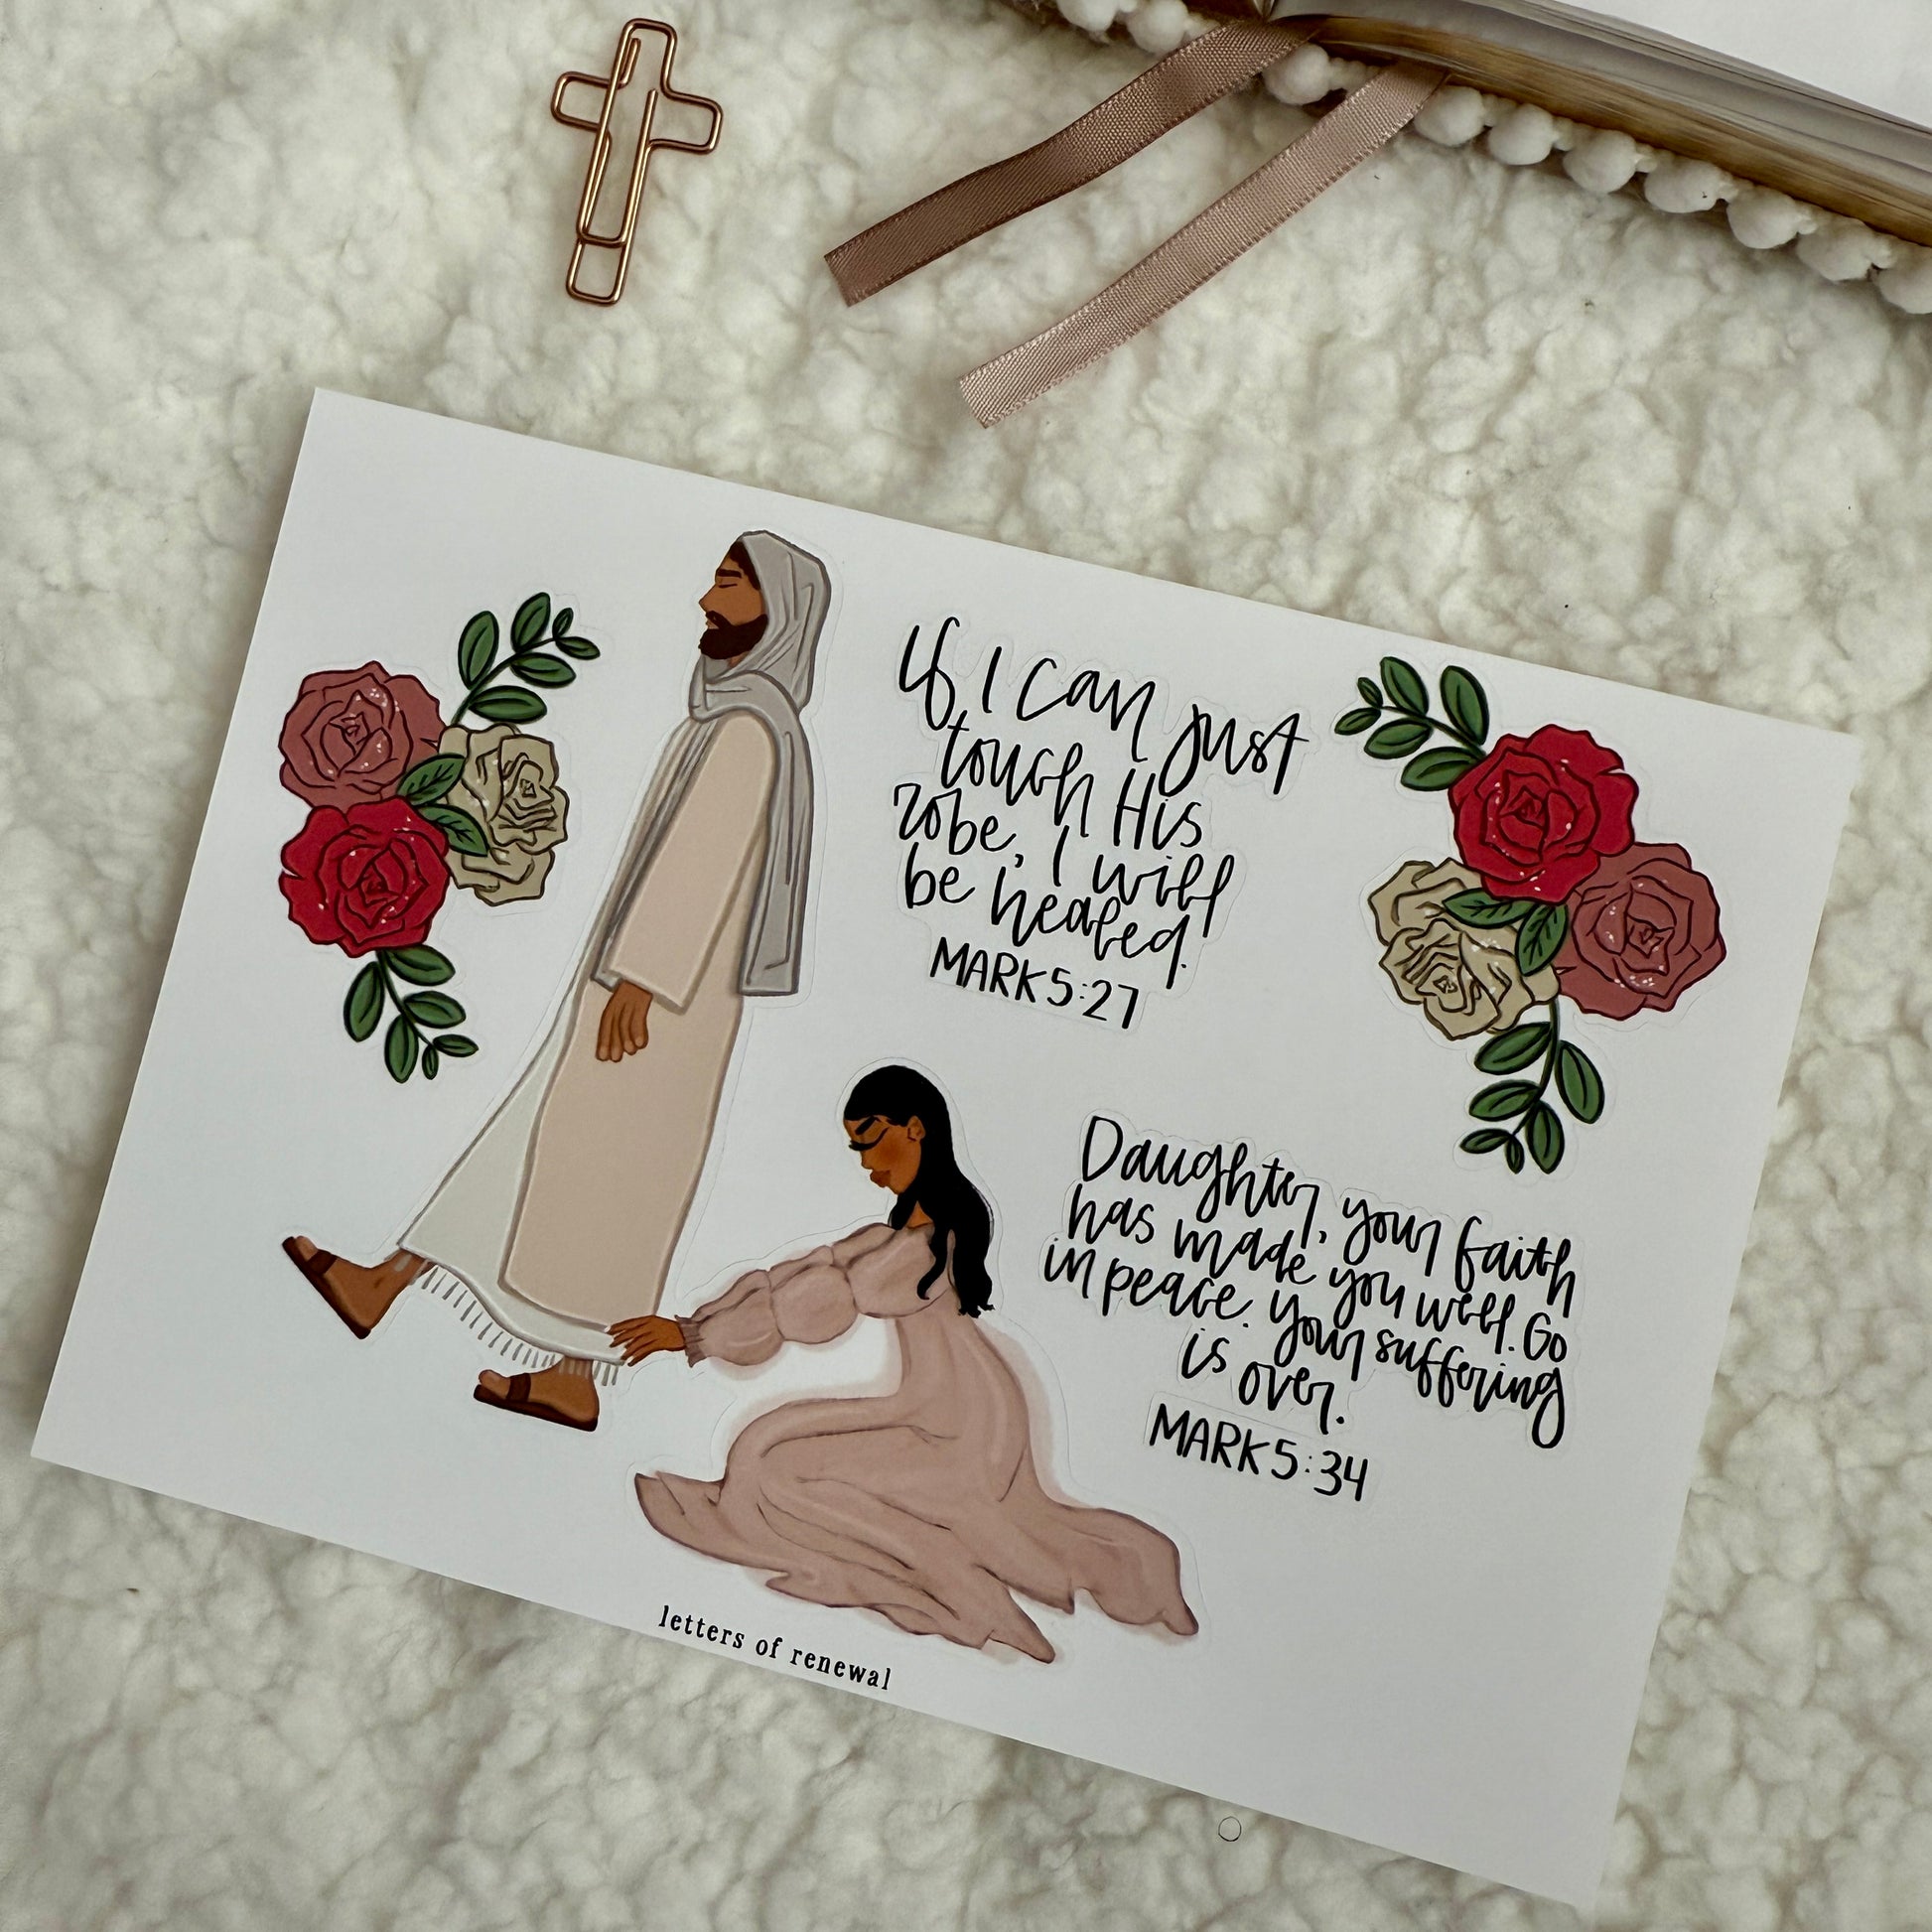 If I can just
touch His
robe, I will
be healed.
MARK 5:27
Daughter, your faith
has made you well. Go
in peace. your suffering
is over.
MARK 5:34
letters of renewal